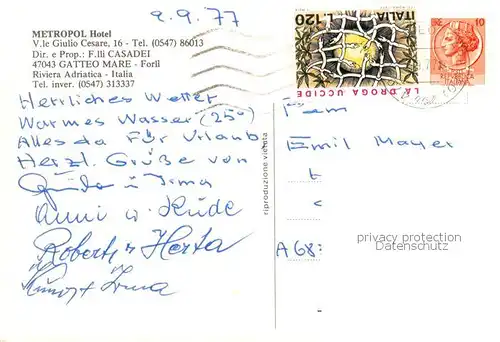 9.9.77
METROPOL Hotel
V.le Giulio Cesare, 16 - Tel. (0547) 86013
Dir. e Prop.: F.lli CASADEI
47043 GATTEO MARE - Forlì
Riviera Adriatica - Italia
Tel. inver. (0547) 313337
Herrliches Wetter
Warmes Wasser (25°)
Alles da für Urlaub
Herzl. Grüße von
Guido u. Irma
Anni u.
Robert u. Herta
Irma
riproduzione vietata
ITALIA L.120
LA DROGA UCCIDE
10
Fam
Emil Mayer
A 68
privacy protection
Datenschutz